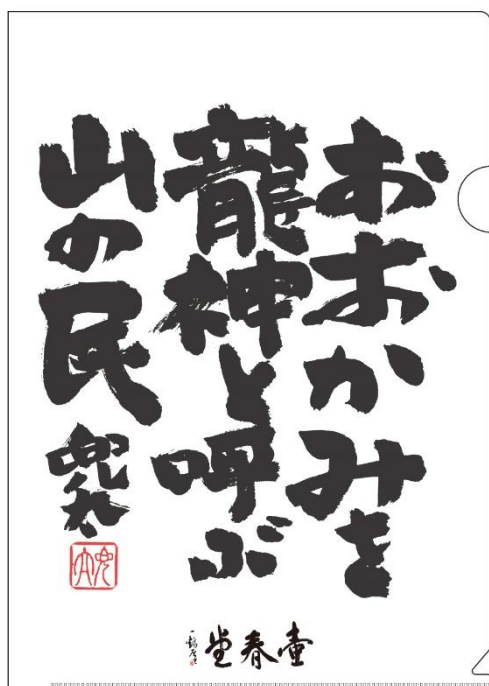 おおかみを
龍神と呼ぶ
山の民
兜太
壷春堂